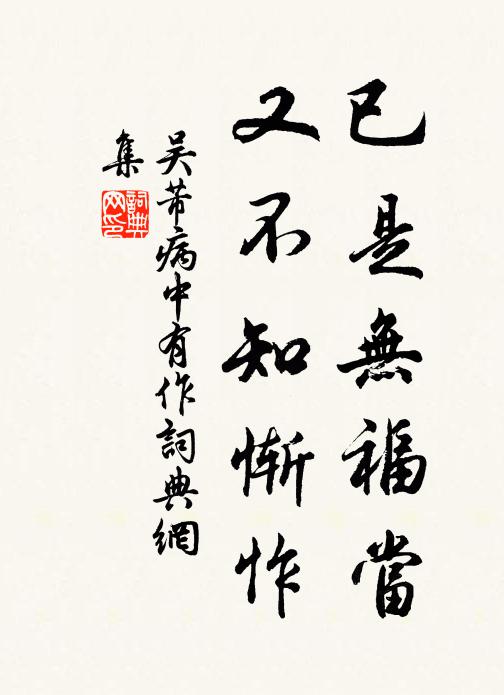 已是無福當
又不知慚怍
吳芾病中有作詞典網
集
詞典
网印